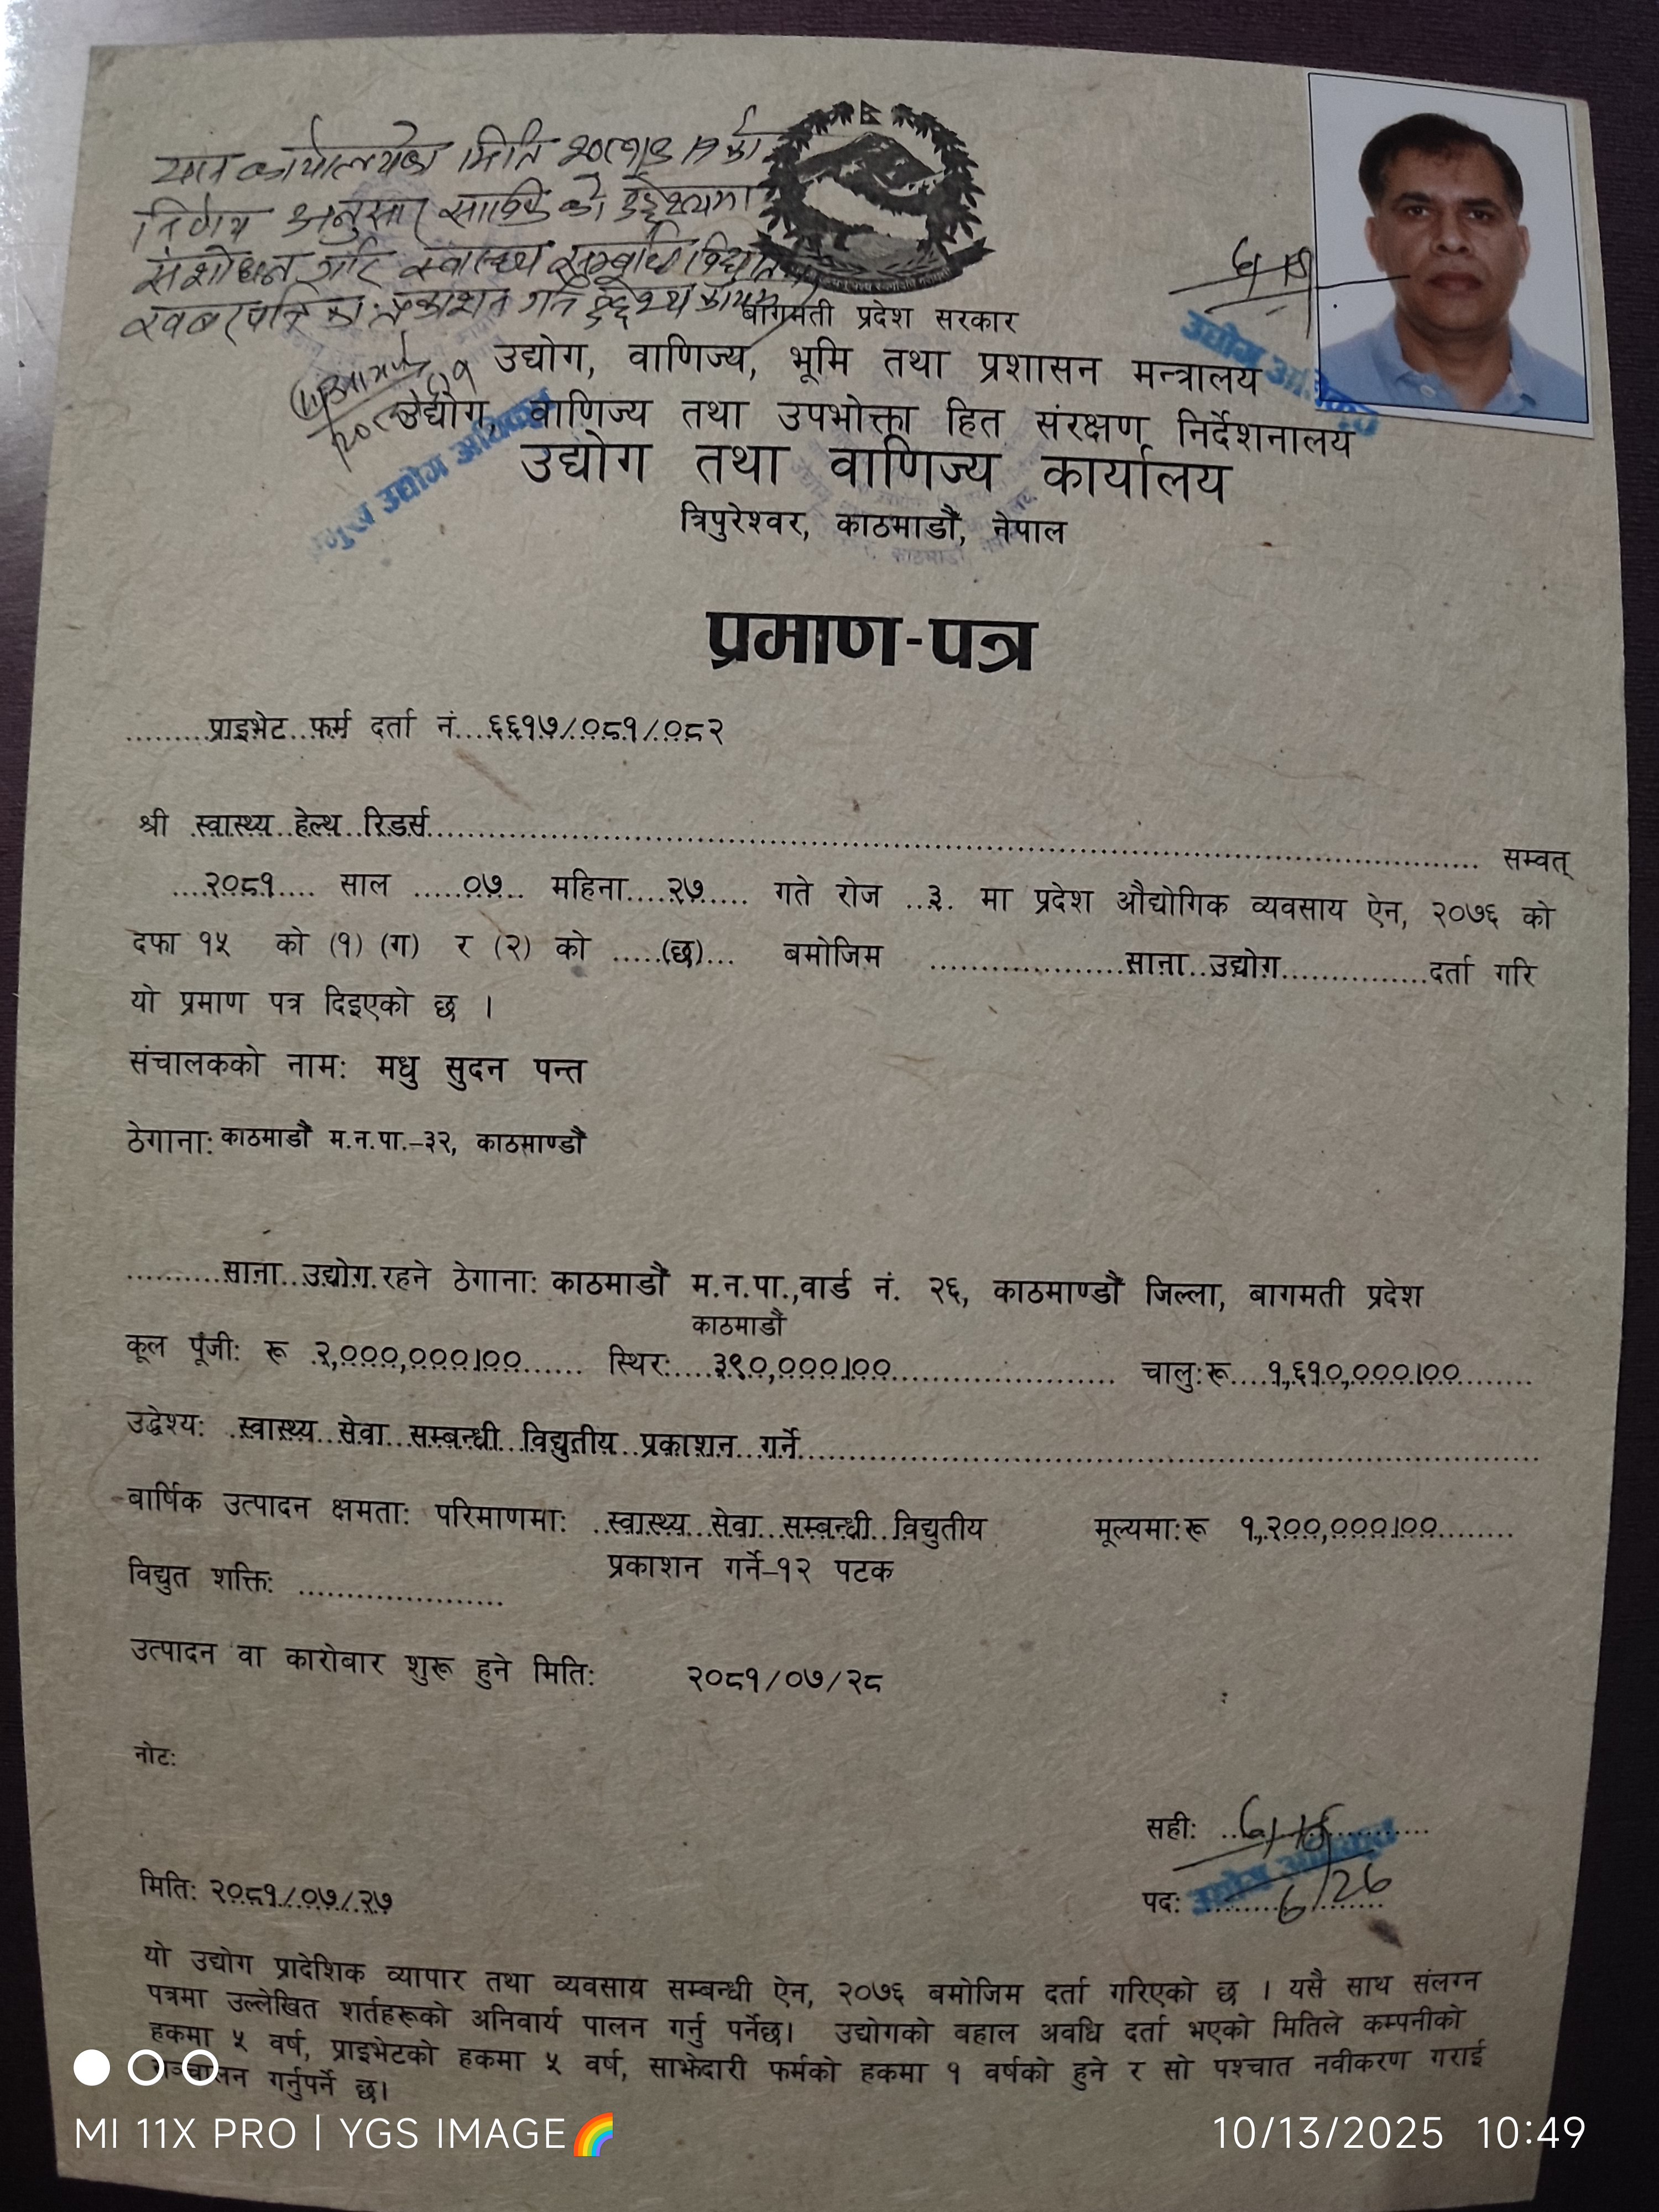 यस कार्यालयको मिति २०८१।९।
निर्णय अनुसार साविकको उद्देश्यमा
संशोधन गरि स्वास्थ्य सम्बन्धि
प्रकाशन गर्ने उद्देश्य कायम
बागमती प्रदेश सरकार
उद्योग, वाणिज्य, भूमि तथा प्रशासन मन्त्रालय
उद्योग, वाणिज्य तथा उपभोक्ता हित संरक्षण निर्देशनालय
उद्योग तथा वाणिज्य कार्यालय
त्रिपुरेश्वर, काठमाडौं, नेपाल
उद्योग अधिकृत
प्रमुख उद्योग अधिकृत
प्रमाण-पत्र
प्राइभेट फर्म दर्ता नं. ६६१७/०८१/०८२
श्री स्वास्थ्य हेल्थ रिडर्स सम्वत्
२०८१ साल ०७ महिना २७ गते रोज ३ मा प्रदेश औद्योगिक व्यवसाय ऐन, २०७६ को
दफा १५ को (१) (ग) र (२) को (छ) बमोजिम साना उद्योग दर्ता गरि
यो प्रमाण पत्र दिइएको छ ।
संचालकको नामः मधु सुदन पन्त
ठेगानाः काठमाडौं म.न.पा.–३२, काठमाण्डौं
साना उद्योग रहने ठेगानाः काठमाडौं म.न.पा.,वार्ड नं. २६, काठमाण्डौं जिल्ला, बागमती प्रदेश
काठमाडौं
कूल पूँजीः रू २,०००,०००।०० स्थिरः ३९०,०००।०० चालुःरू १,६१०,०००।००
उद्धेश्यः स्वास्थ्य सेवा सम्बन्धी विद्युतीय प्रकाशन गर्ने
बार्षिक उत्पादन क्षमताः परिमाणमाः स्वास्थ्य सेवा सम्बन्धी विद्युतीय मूल्यमाःरू १,२००,०००।००
प्रकाशन गर्ने–१२ पटक
विद्युत शक्तिः
उत्पादन वा कारोबार शुरू हुने मितिः २०८१/०७/२८
नोटः
सहीः
मितिः २०८१/०७/२७
पदः उद्योग अधिकृत
यो उद्योग प्रादेशिक व्यापार तथा व्यवसाय सम्बन्धी ऐन, २०७६ बमोजिम दर्ता गरिएको छ । यसै साथ संलग्न
पत्रमा उल्लेखित शर्तहरूको अनिवार्य पालन गर्नु पर्नेछ। उद्योगको बहाल अवधि दर्ता भएको मितिले कम्पनीको
हकमा ५ वर्ष, प्राइभेटको हकमा ५ वर्ष, साझेदारी फर्मको हकमा १ वर्षको हुने र सो पश्चात नवीकरण गराई
सञ्चालन गर्नुपर्ने छ।
MI 11X PRO | YGS IMAGE🌈 10/13/2025 10:49